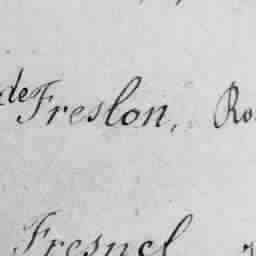 de Freslon, Ro
Fresnel